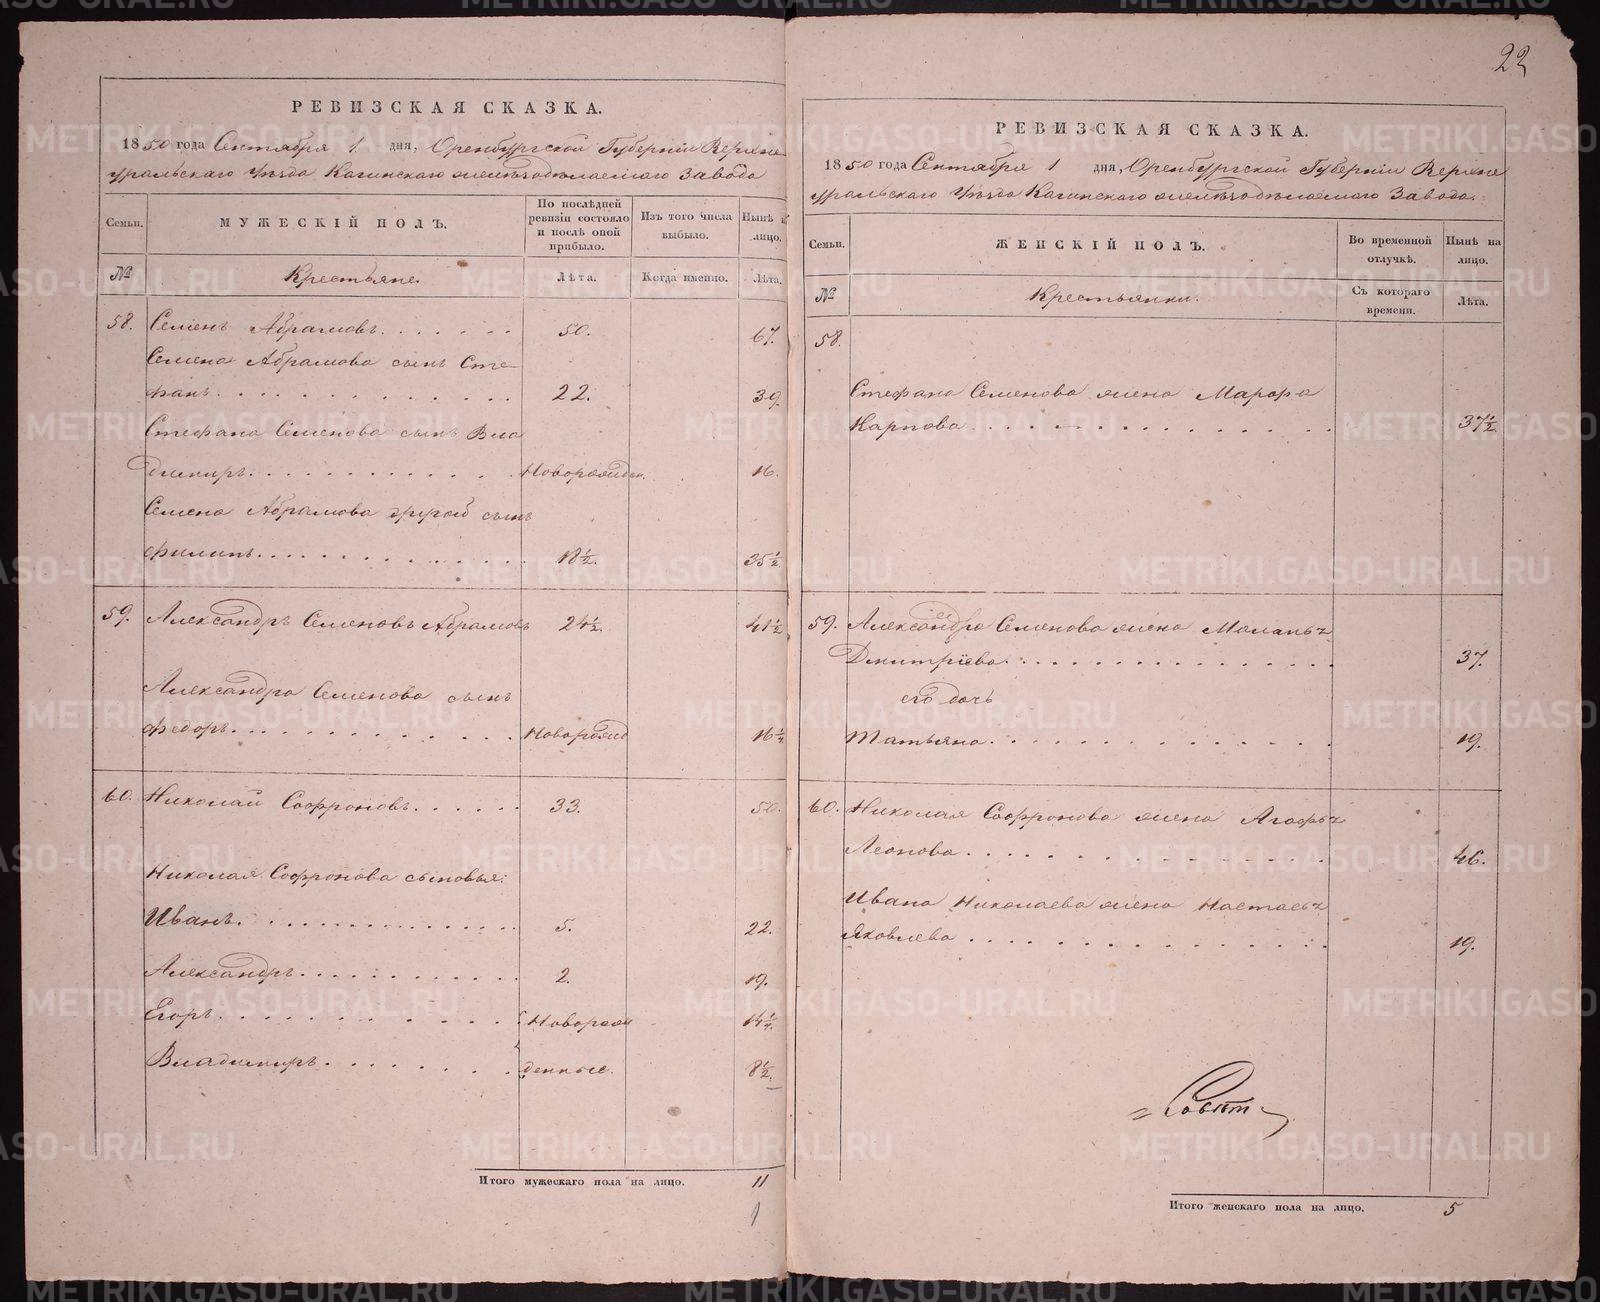 22
РЕВИЗСКАЯ СКАЗКА.
1850 года Сентября 1 дня, Оренбургской Губернiи Верхне
уральскаго Уѣзда Кагинскаго желѣзодѣлаемаго Завода
Семьи.
МУЖЕСКIЙ ПОЛЪ.
По послѣдней ревизiи состояло и послѣ оной прибыло.
Изъ того числа выбыло.
Нынѣ на лицо.
№
Крестьяне.
Лѣта.
Когда именно.
Лѣта.
58. Семенъ Абрамовъ. 50. 67.
Семена Абрамова сынъ Сте-
фанъ. 22. 39.
Стефана Семенова сынъ Вла
димиръ. Новорожден. 16.
Семена Абрамова другой сынъ
Филипъ. 18½. 35½.
59. Александръ Семеновъ Абрамовъ 24½. 41½
Александра Семенова сынъ
Федоръ. Новорожд 16¼
60. Николай Софроновъ. 33. 50.
Николая Софронова сыновья:
Иванъ. 5. 22.
Александръ. 2. 19.
Егоръ. Новорож 14¼.
Владимиръ. денные. 8½.
Итого мужескаго пола на лицо. 11
1
РЕВИЗСКАЯ СКАЗКА.
1850 года Сентября 1 дня, Оренбургской Губернiи Верхне
уральскаго Уѣзда Кагинскаго желѣзодѣлаемаго Завода.
Семьи.
ЖЕНСКIЙ ПОЛЪ.
Во временной отлучкѣ.
Нынѣ на лицо.
№
Крестьянки.
Съ котораго времени.
Лѣта.
58.
Стефана Семенова жена Марфа
Карпова. 37½.
59. Александра Семенова жена Маланья
Дмитрiева. 37.
его дочь
Татьяна. 19.
60. Николая Софронова жена Агафья
Леонова. 46.
Ивана Николаева жена Настасья
Яковлева 19.
Итого женскаго пола на лицо. 5
METRIKI.GASO-URAL.RU